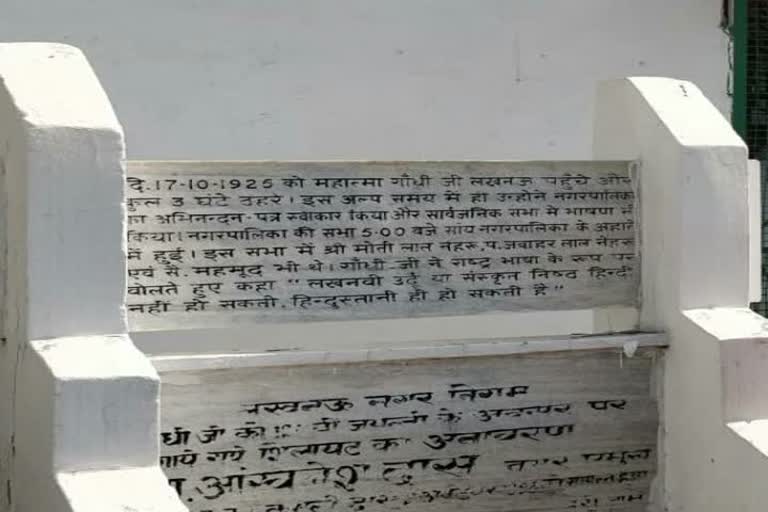 दि.17-10-1925 को महात्मा गाँधी जी लखनऊ पहुँचे और
कुल 3 घंटे ठहरे। इस अल्प समय में ही उन्होंने नगरपालिका
का अभिनन्दन-पत्र स्वीकार किया और सार्वजनिक सभा में भाषण भी
किया। नगरपालिका की सभा 5-00 बजे सांय नगरपालिका के अहाते
में हुई। इस सभा में श्री मोती लाल नेहरू, प.जवाहर लाल नेहरू
एवं सै. महमूद भी थे। गाँधी-जी ने राष्ट्र भाषा के रूप पर
बोलते हुए कहा "लखनवी उर्दू या संस्कृत निष्ठ हिन्दी
नही हो सकती, हिन्दुस्तानी ही हो सकती है"
लखनऊ नगर निगम
जी की जयन्ती के अवसर पर
गये शिलापट का अनावरण
नगर प्रमुख